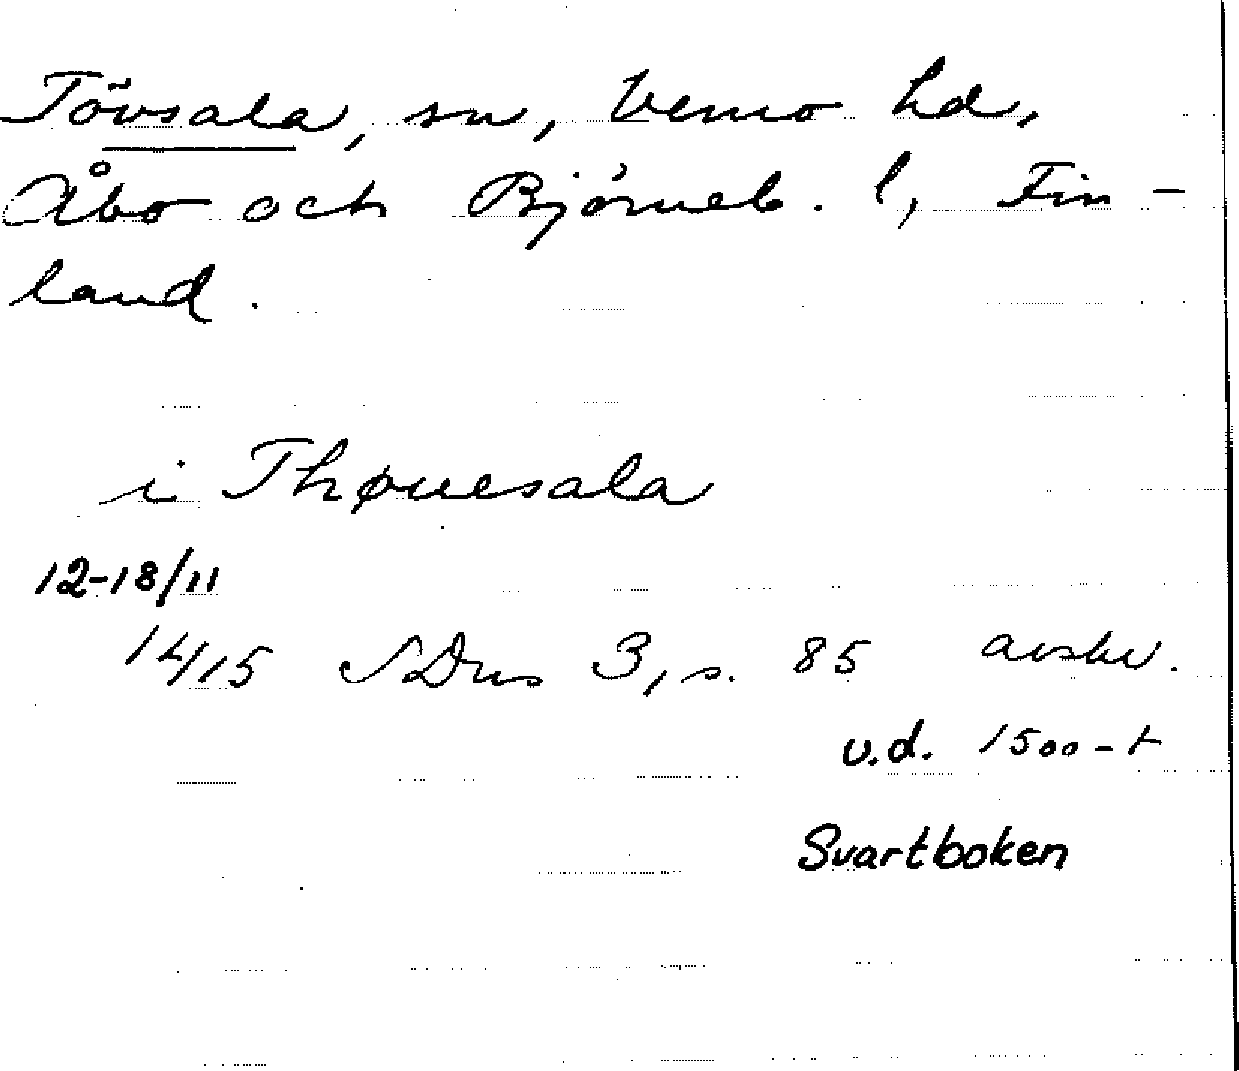 Tövsala, sn, Vemo hd,
Åbo och Björneb. l, Fin-
land.
i Thøuesala
12-18/11
1415 SDns 3, s. 85 avskr.
v.d. 1500-t
Svartboken